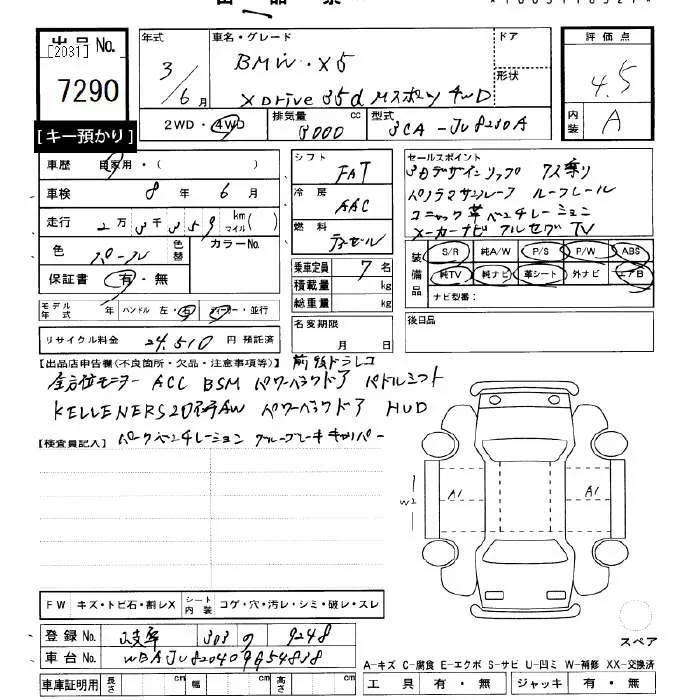 出品No.
[2031]
7290
[キー預かり]
年式
3/6月
車名・グレード
BMW・X5
XDrive 35d Mスポーツ 4WD
ドア
形状
評価点
4.5
内装
A
2WD・4WD
排気量
3000 cc
型式
3CA-JU8230A
車歴
自家用・( )
車検
8年 6月
走行
2万3千359 km マイル( )
色
パール
色替
カラーNo.
保証書
有・無
シフト
FAT
冷房
AAC
燃料
ディーゼル
乗車定員
7名
積載量
kg
総重量
kg
セールスポイント
3Dデザインリップ 7人乗り
パノラマサンルーフ ルーフレール
コニャック革 ベンチレーション
メーカーナビ フルセグTV
装備品
S/R 純A/W P/S P/W ABS
純TV 純ナビ 革シート 外ナビ エアB
ナビ型番:
モデル年式
年
ハンドル 左・右
ディーラー・並行
リサイクル料金
24,510 円 預託済
名変期限
月 日
後日品
【出品店申告欄(不良箇所・欠品・注意事項等)】 前後ドラレコ
全方位モニター ACC BSM パワーバックドア パドルシフト
KELLENERS20インチAW パワーバックドア HUD
【検査員記入】
W2
A1
A1
FW
キズ・トビ石・割レX
シート内装
コゲ・穴・汚レ・シミ・破レ・スレ
登録No.
岐阜 303 の 9248
車台No.
WBAJU820409G54838
スペア
A-キズ C-腐食 E-エクボ S-サビ U-凹ミ W-補修 XX-交換済
車庫証明用
長さ cm
幅 cm
高さ cm
工具
有・無
ジャッキ
有・無